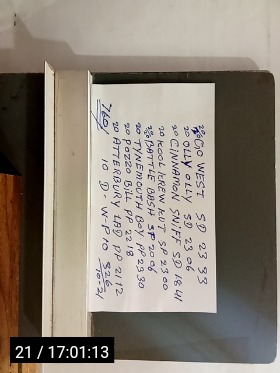 20 GO WEST SD 23 33
20 OLLY OLLY SD 23 06
20 CINNAMON SNIFF SD 18 41
20 KOOL KREW KUT SP 23 00
20 BATTLE BASH SP 20 06
20 TYNEMOUTH BOY PP 23 30
20 POZZO BILL PP 22 18
20 ATTERBURY LAD PP 21 12
10 D-W PTO 826
760/ 10-21
21 / 17:01:13